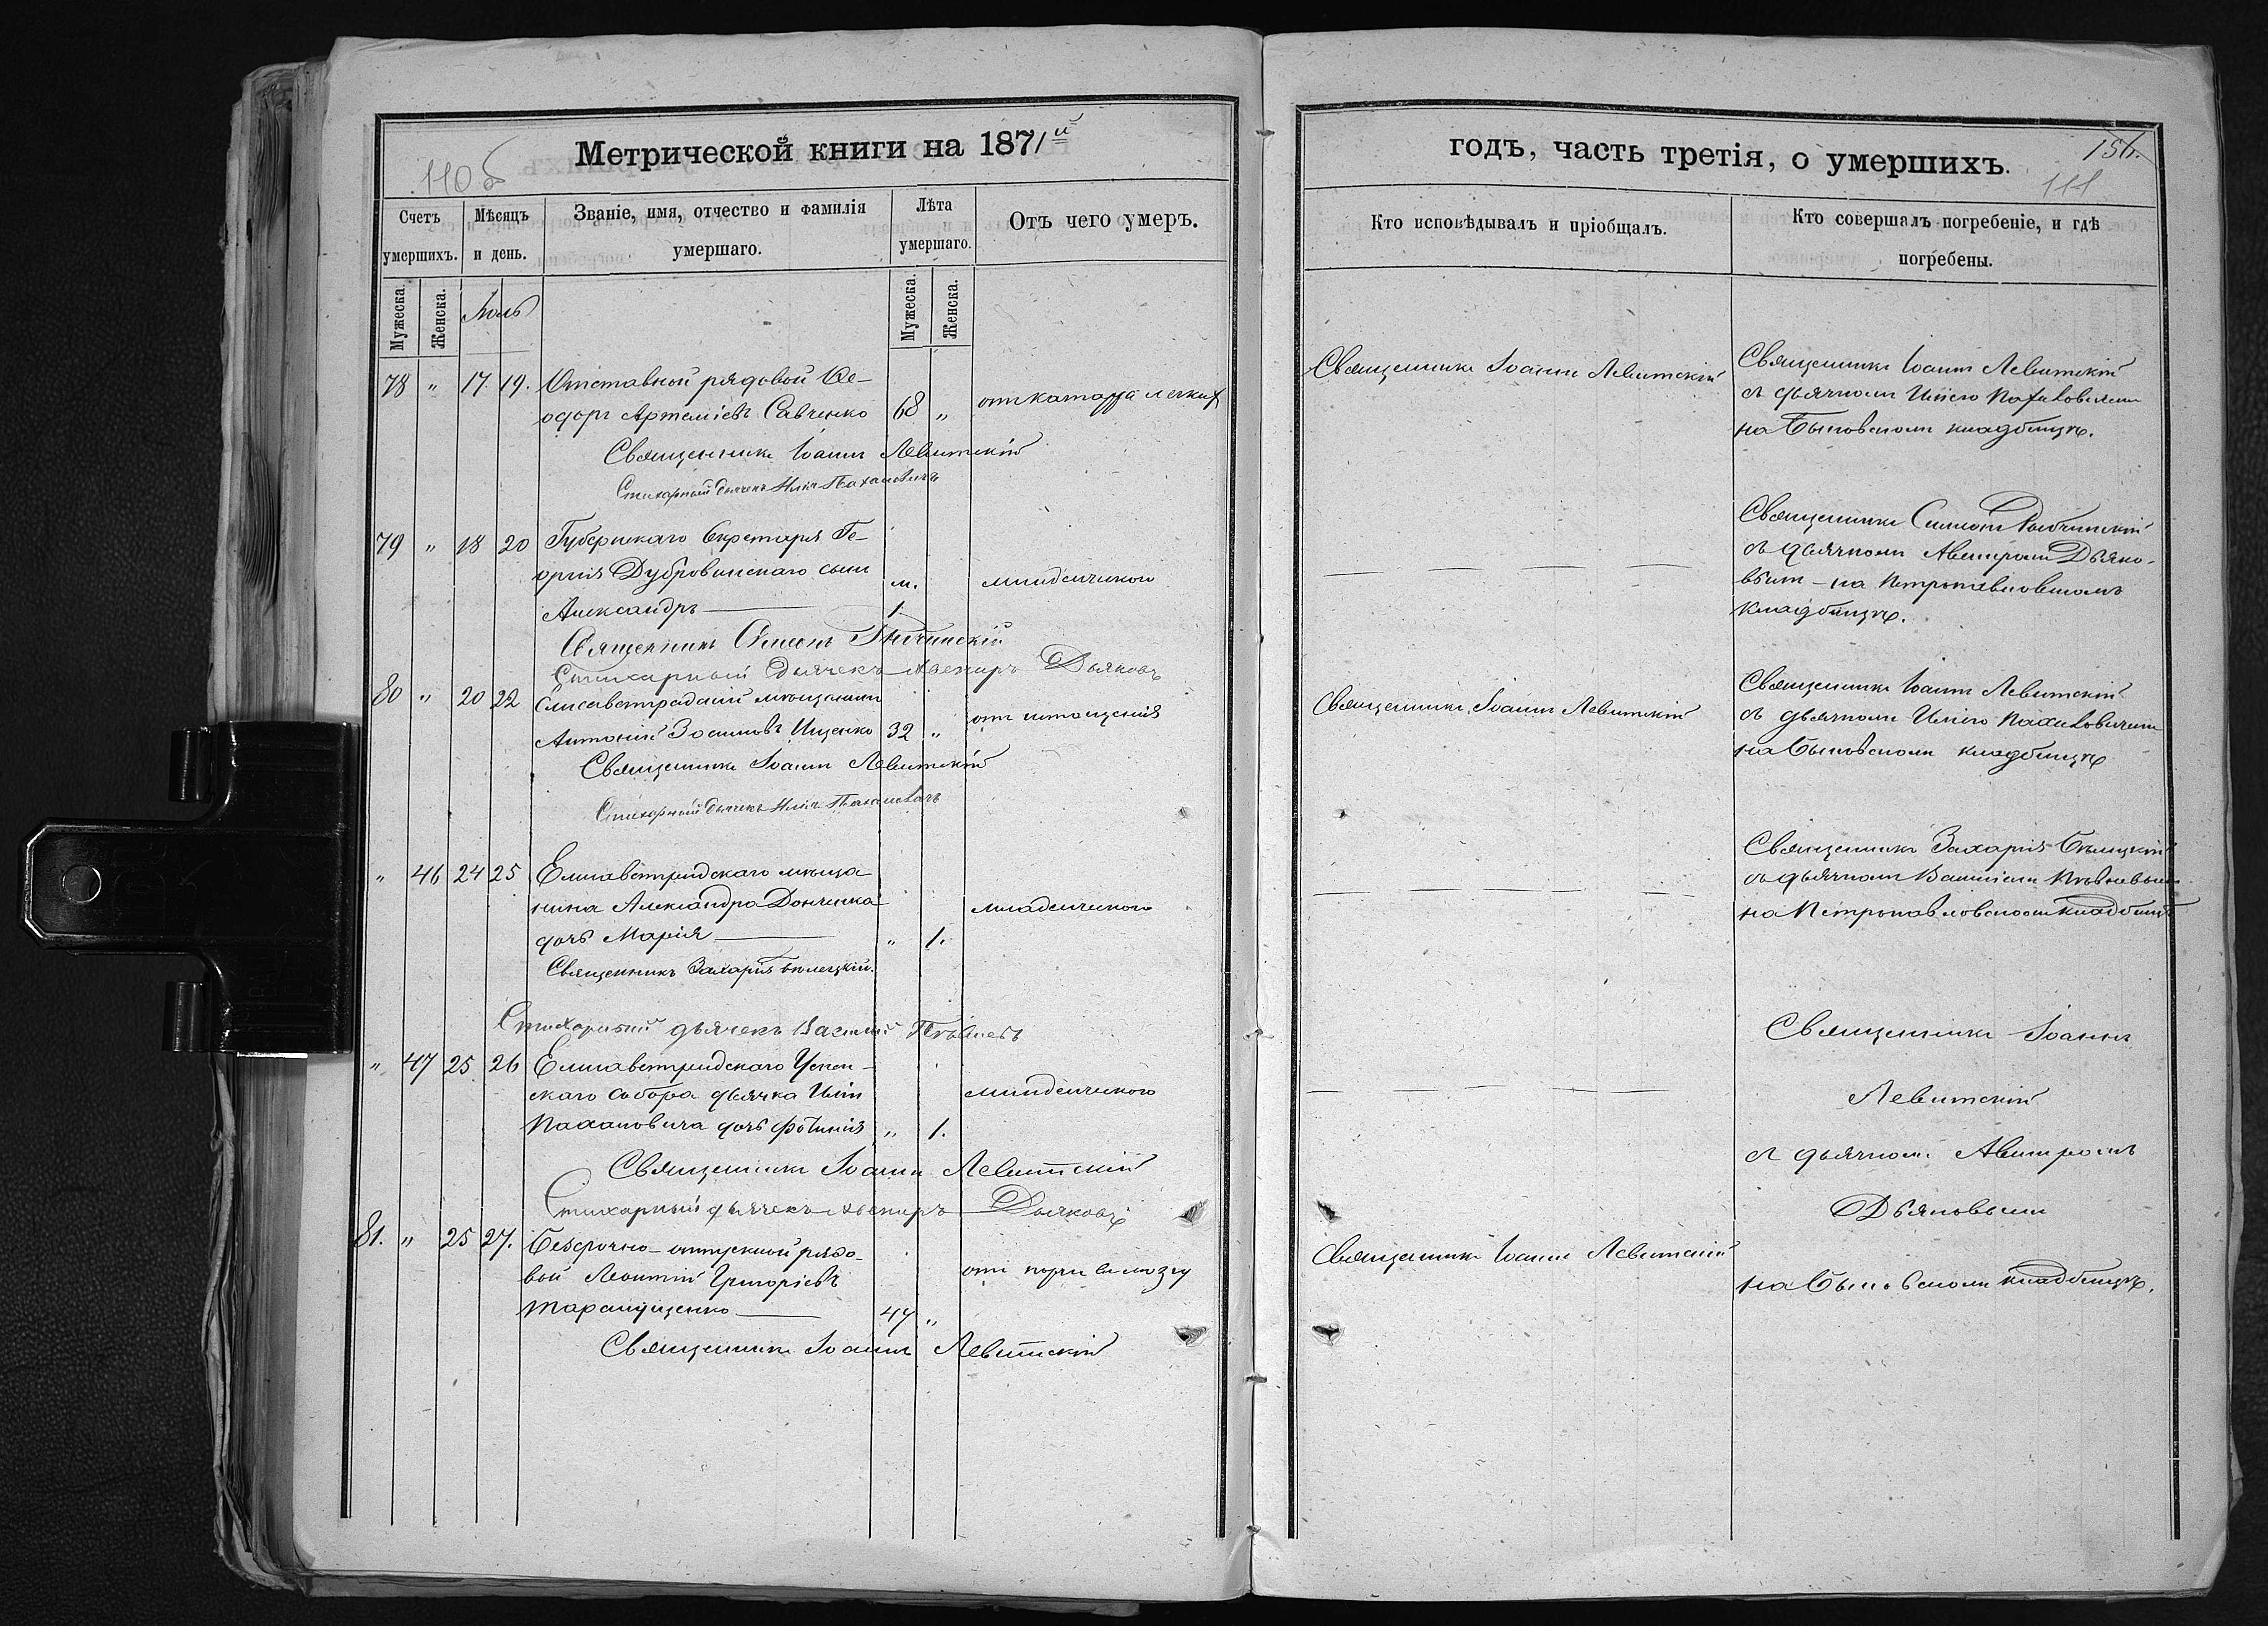 Метрической книги на 1871й
110 б
Счетъ умершихъ.
Мѣсяцъ и день.
Званіе, имя, отчество и фамилія умершаго.
Лѣта умершаго.
Отъ чего умеръ.
Мужеска.
Женска.
Іюль
Мужеска.
Женска.
78 " 17. 19. Отставной рядовой Ѳе-
одоръ Артеміевъ Савченко 68 " отъ катарра легкихъ
Священникъ Іоаннъ Левитскій
Стихарный дьячекъ Илія Пахановичъ
79 " 18 20 Губернскаго Секретаря Ге-
оргія Дубровинскаго сынъ м. младенческого
Александръ 1.
Священникъ Симеонъ
Стихарный Дьячекъ Авениръ Дьяковъ
80 " 20 22 Елисаветградскій мѣщанинъ
Антоній Зосимовъ Ищенко 32 " отъ истощенія
Священникъ Іоаннъ Левитскій
Стихарный дьячекъ Илія Пахановичъ
" 46 24 25 Елисаветградскаго мѣща-
нина Александра Донченка младенческого
дочь Марія " 1.
Священникъ Захарія Бѣлецкій.
Стихарный дьячекъ Василій Пѣвневъ
" 47 25 26 Елисаветградскаго Успен-
скаго собора дьячка Иліи младенческого
Пахановича дочь Фотинія " 1.
Священникъ Іоаннъ Левитскій
Стихарный дьячекъ Авениръ Дьяковъ
81. " 25 27. Безсрочно-отпускной рядо-
вой Леонтій Григоріевъ отъ
Таранущенко 47 "
Священникъ Іоаннъ Левитскій
годъ, часть третія, о умершихъ.
156.
111
Кто исповѣдывалъ и пріобщалъ.
Кто совершалъ погребеніе, и гдѣ погребены.
Священникъ Іоаннъ Левитскій
Священникъ Іоаннъ Левитскій
съ дьячкомъ Иліею Пахановичемъ
на Быковскомъ кладбищѣ.
Священникъ Симеонъ
съ дьячкомъ Авениромъ Дьяко-
вымъ - на Петропавловскомъ
кладбищѣ.
Священникъ Іоаннъ Левитскій
Священникъ Іоаннъ Левитскій
съ дьячкомъ Иліею Пахановичемъ
на Быковскомъ кладбищѣ
Священникъ Захарія Бѣлецкій
съ дьячкомъ Василіемъ Пѣвневымъ
на Петропавловскомъ кладбищѣ
Священникъ Іоаннъ
Левитскій
съ дьячкомъ Авениромъ
Дьяковымъ
Священникъ Іоаннъ Левитскій
на Быковскомъ кладбищѣ.